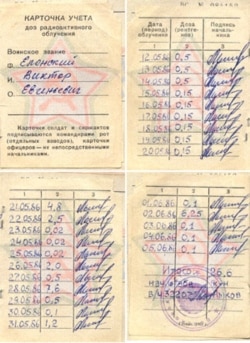 КАРТОЧКА УЧЕТА
доз радиоактивного
облучения
Воинское звание
Ф
И Виктор
О Евгеневич
Карточки солдат и сержантов
подписываются командирами рот
(отдельных взводов), карточки
офицеров — их непосредственными
начальниками.
Дата (период) облучения Доза (рентген) Подпись начальника
12.05.86 0,5
13.05.86 0,5
14.05.86 0,5
15.05.86 0,5
16.05.86 0,5
17.05.86 0,5
18.05.86 0,5
19.05.86 0,5
20.05.86 0,5
1 2 3
21.05.86 4,8
22.05.86 2,5
23.05.86 0,02
24.05.86 0,02
25.05.86 0,02
26.05.86 2,0
27.05.86 0,5
28.05.86 7,6
29.05.86 0,5
30.05.86 0,1
31.05.86 1,2
1 2 3
01.06.86 0,1
02.06.86 0,25
03.06.86 0,1
04.06.86 0,1
05.06.86 0,1
Итого: 26,6
в/ч 32207